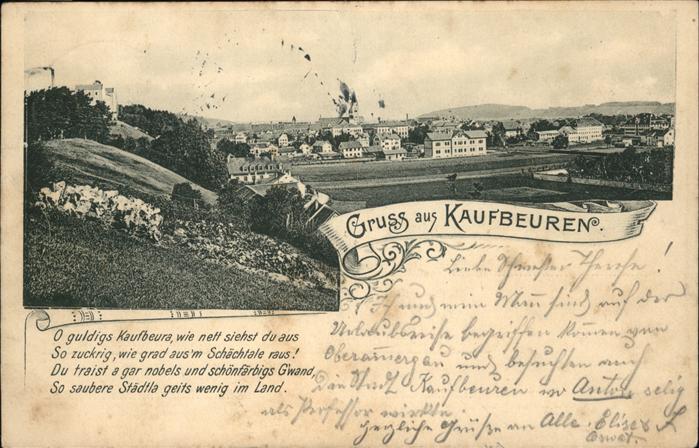 Gruss aus KAUFBEUREN.
O guldigs Kaufbeura, wie nett siehst du aus
So zuckrig, wie grad aus'm Schächtale raus!
Du traist a gar nobels und schönfärbigs G'wand,
So saubere Städtla geits wenig im Land.
Liebe Schwester Therese!
Ich und mein Mann sind auf der
Urlaubsreise begriffen kommen von
Oberammergau und besuchten auch
die Stadt Kaufbeuren wo Anton selig
als Professor wirkte
herzliche Grüße an Alle. Elise